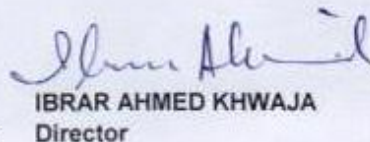 IBRAR AHMED KHWAJA
Director